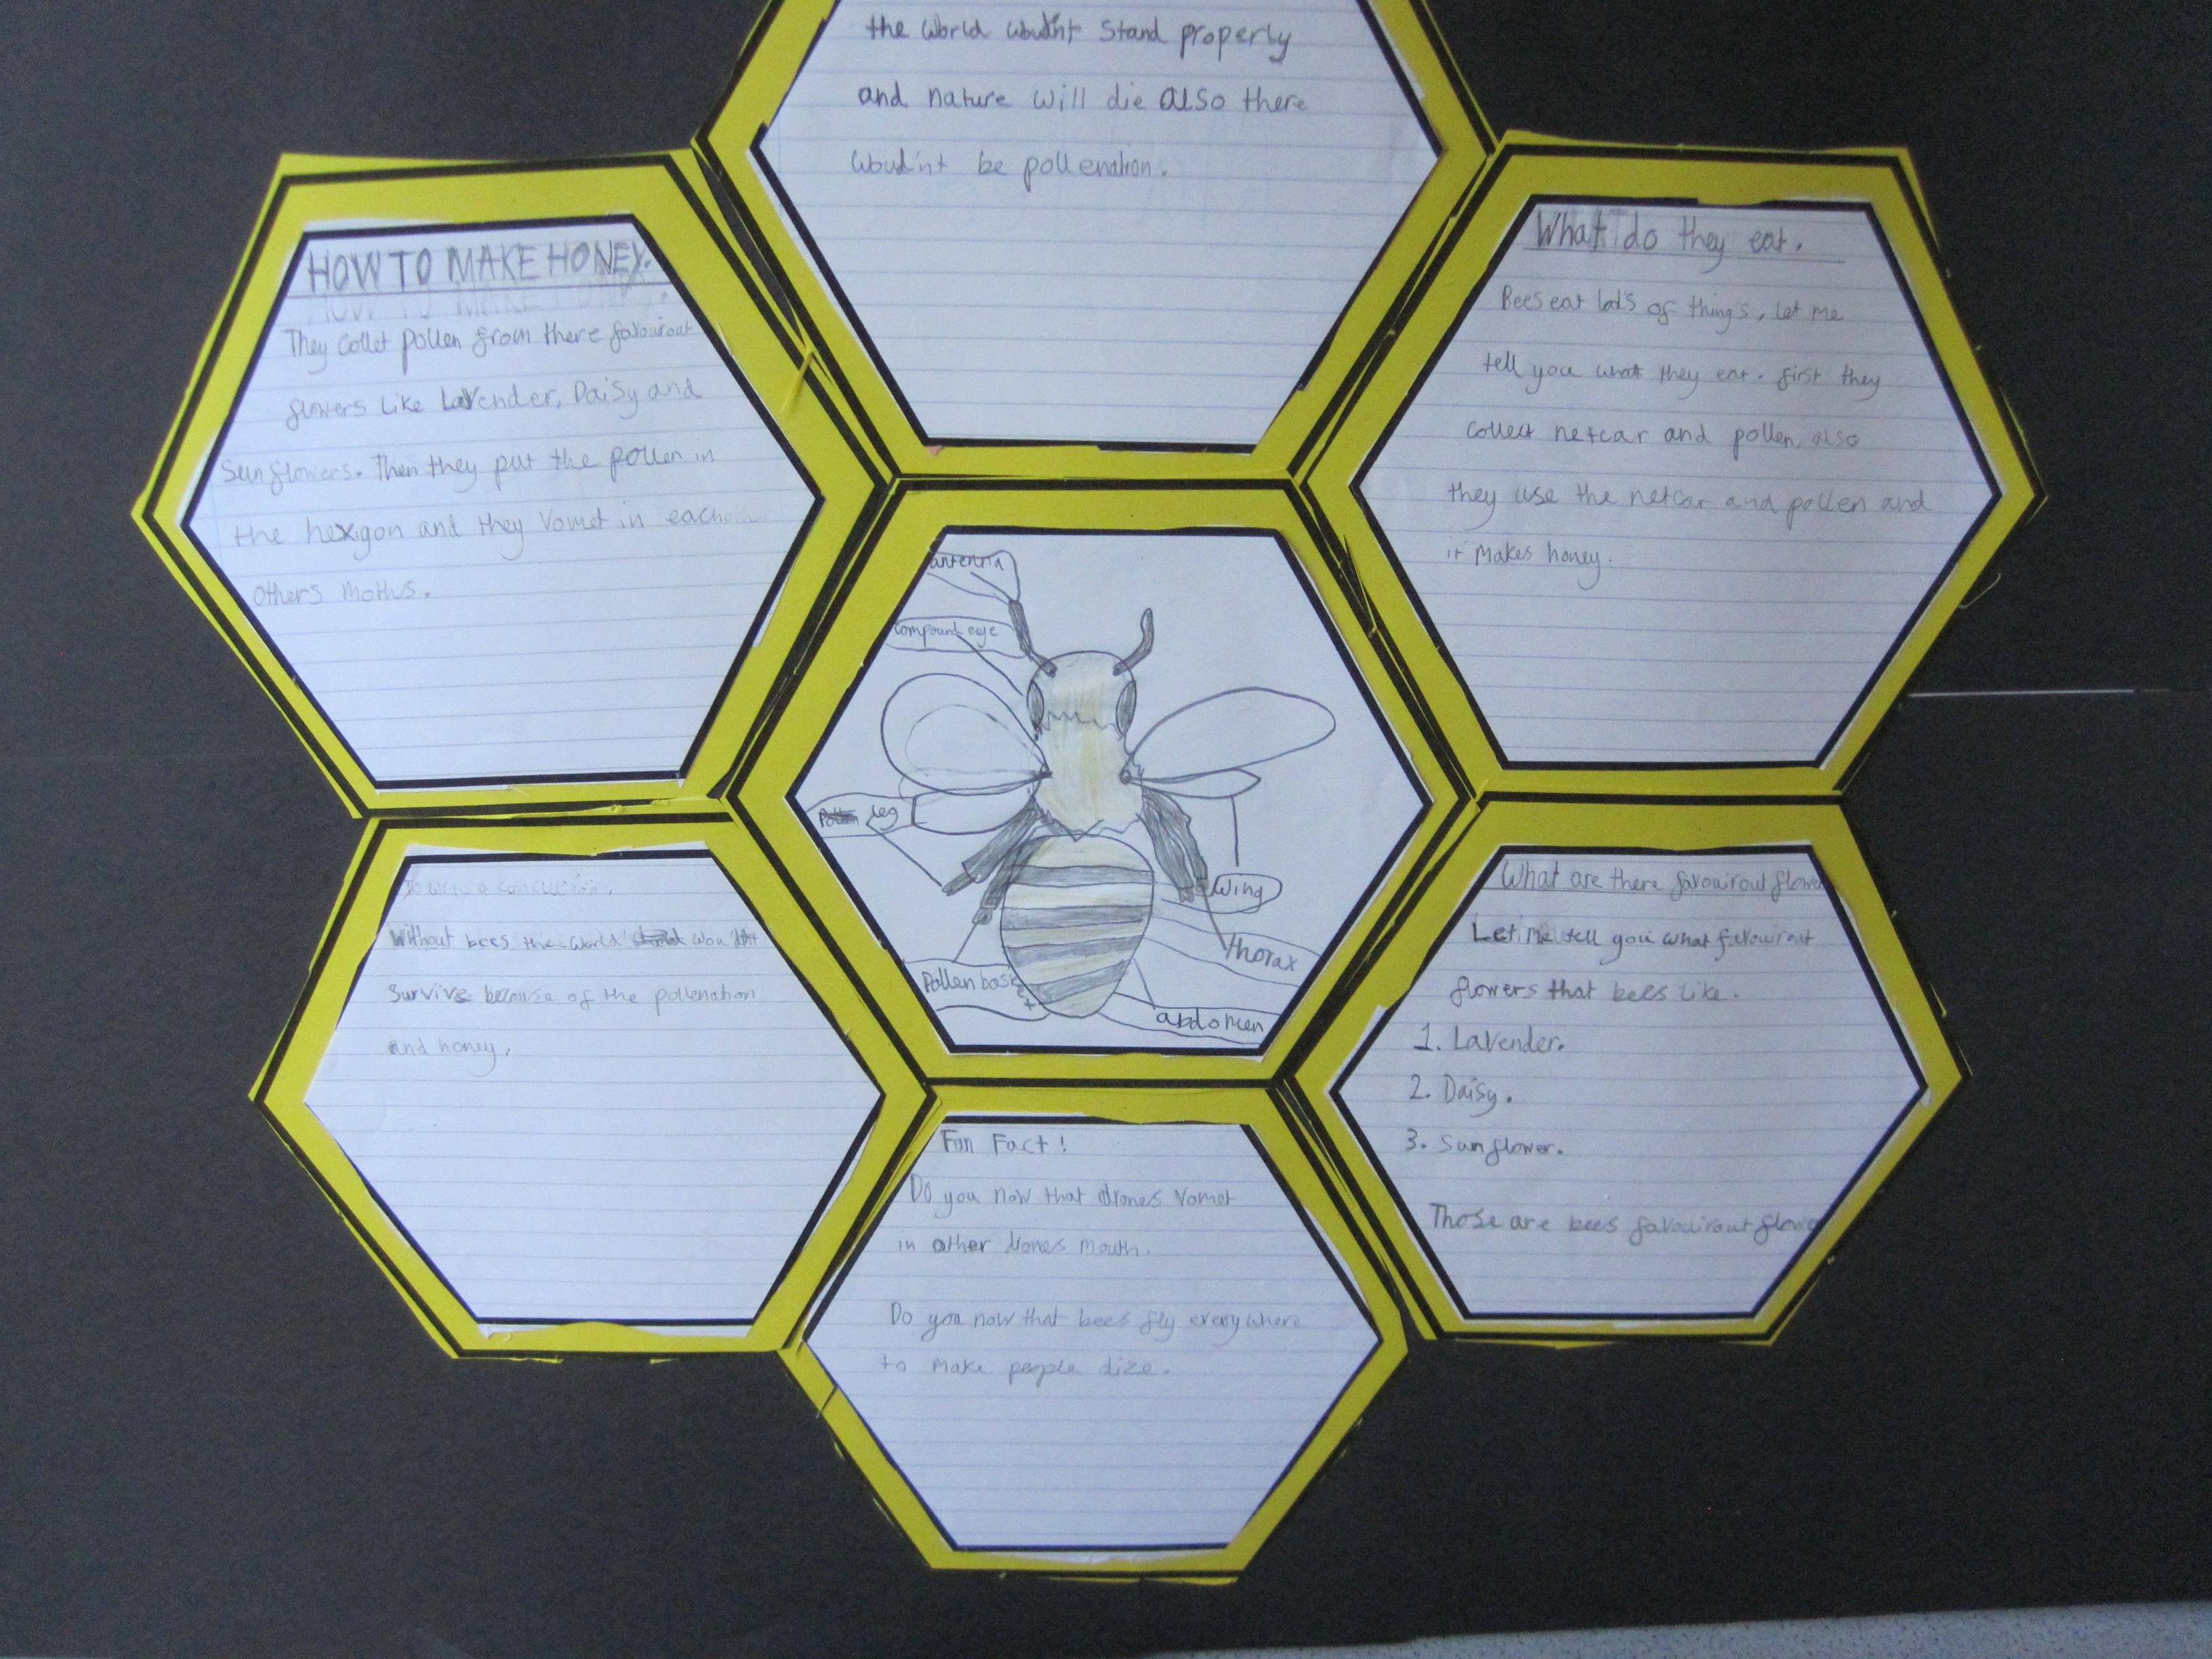 the world woud'nt stand properly
and nature will die also there
woud'nt be pollenation.
HOW TO MAKE HONEY.
They collet pollen from there favourout
flowers like Lavender, Daisy and
sunflowers. Then they put the pollen in
the hexigon and they vomet in each
others moths.
What do they eat.
Bees eat lots of things, let me
tell you what they eat. first they
collect netcar and pollen, also
they use the netcar and pollen and
it makes honey.
antenna
compound eye
leg
Wing
Pollen bask
et
Thorax
abdomen
To write a conclusion.
Without bees the world woul'dnt
survive because of the pollenation
and honey.
What are there favouirout flower
Let me tell you what favouirout
flowers that bees like.
1. Lavender.
2. Daisy.
3. Sunflower.
Those are bees favouirout flowe
Fun Fact!
Do you now that drones vomet
in other drones mouth.
Do you now that bees fly everywhere
to make people dize.